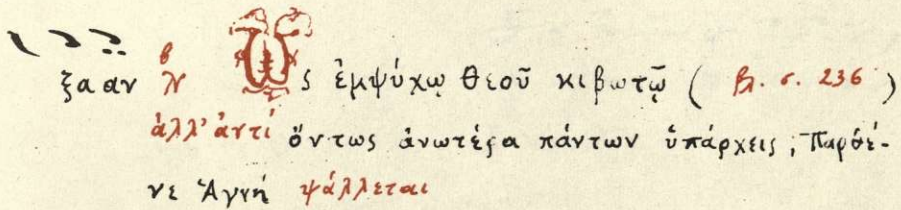 ξα αν Ὡς ἐμψύχῳ Θεοῦ κιβωτῷ ( βλ. σ. 236 )
ἀλλ' ἀντὶ ὄντως ἀνωτέρα πάντων ὑπάρχεις, Παρθέ-
νε Ἁγνή ψάλλεται